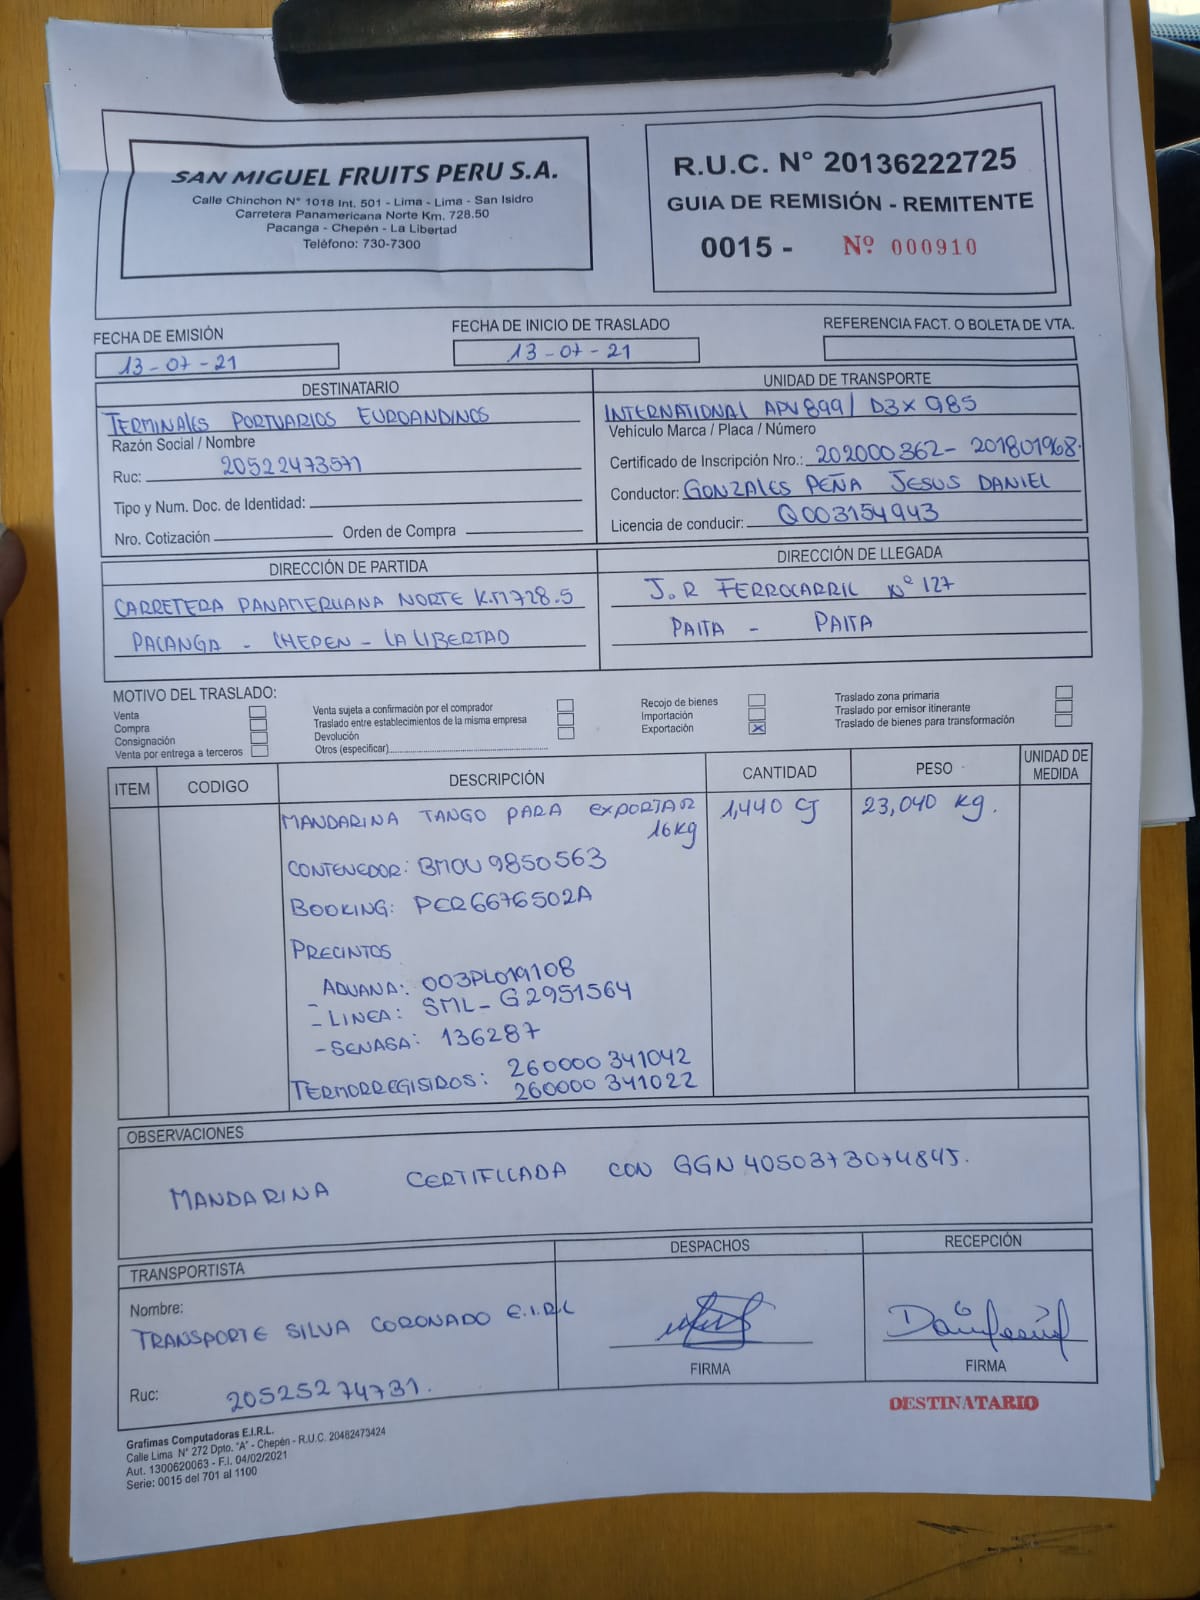 SAN MIGUEL FRUITS PERU S.A.
Calle Chinchon N° 1018 Int. 501 - Lima - Lima - San Isidro
Carretera Panamericana Norte Km. 728.50
Pacanga - Chepén - La Libertad
Teléfono: 730-7300
R.U.C. N° 20136222725
GUIA DE REMISIÓN - REMITENTE
0015 - Nº 000910
FECHA DE EMISIÓN
13-07-21
FECHA DE INICIO DE TRASLADO
13-07-21
REFERENCIA FACT. O BOLETA DE VTA.
DESTINATARIO
TERMINALES PORTUARIOS EUROANDINOS
Razón Social / Nombre
Ruc: 20522473571
Tipo y Num. Doc. de Identidad:
Nro. Cotización Orden de Compra
UNIDAD DE TRANSPORTE
INTERNATIONAL APV899/ D3X985
Vehículo Marca / Placa / Número
Certificado de Inscripción Nro.: 202000362- 201801968.
Conductor: GONZALES PEÑA JESUS DANIEL
Licencia de conducir: Q003154943
DIRECCIÓN DE PARTIDA
CARRETERA PANAMERIANA NORTE K.M728.5
PACANGA - CHEPEN - LA LIBERTAD
DIRECCIÓN DE LLEGADA
J.R FERROCARRIL Nº 127
PAITA - PAITA
MOTIVO DEL TRASLADO:
Venta
Compra
Consignación
Venta por entrega a terceros
Venta sujeta a confirmación por el comprador
Traslado entre establecimientos de la misma empresa
Devolución
Otros (especificar)
Recojo de bienes
Importación
Exportación X
Traslado zona primaria
Traslado por emisor itinerante
Traslado de bienes para transformación
ITEM CODIGO DESCRIPCIÓN CANTIDAD PESO UNIDAD DE MEDIDA
MANDARINA TANGO PARA EXPORTAR 1,440 CJ 23,040 Kg.
16Kg
CONTENEDOR: BMOU 9850563
BOOKING: PER6676502A
PRECINTOS
- ADUANA: 003PL019108
- LINEA: SML-G2951564
- SENASA: 136287
TERMORREGISIDROS: 260000341042
260000341022
OBSERVACIONES
MANDARINA CERTIFICADA CON GGN 4050373074845.
TRANSPORTISTA
Nombre:
TRANSPORTE SILVA CORONADO E.I.R.L
Ruc: 20525274731.
DESPACHOS
FIRMA
RECEPCIÓN
FIRMA
DESTINATARIO
Grafimas Computadoras E.I.R.L.
Calle Lima N° 272 Dpto. "A" - Chepén - R.U.C. 20482473424
Aut. 1300620063 - F.I. 04/02/2021
Serie: 0015 del 701 al 1100